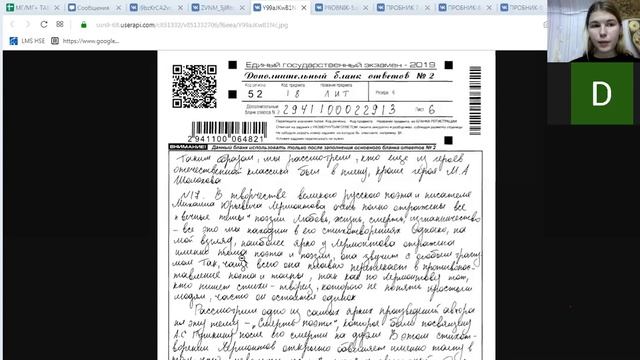 МЕ/MF+ ТАБ
9bzKrCA2vc
ZVNM_5jlR
Y99aJKwB1N
ПРОБНИК-5
ПРОБНИК 7
ПРОБНИК 8
ПРОБНИК 6
ПРОБНИК
sun9-68.userapi.com/c851332/v851332706/f6eea/Y99aJKwB1Nc.jpg
LMS HSE
https://www.google...
Единый государственный экзамен - 2019
Дополнительный бланк ответов № 2
Код региона
Код предмета
Название предмета
Резерв - 6
52
18
ЛИТ
Дополнительный бланк ответов № 2
2941100022913
Лист
6
2941100064821
ВНИМАНИЕ!
Данный бланк использовать только после заполнения основного бланка ответов № 2
Таким образом, мы рассмотрели, кто еще из героев
отечественной классики был в плену, кроме героя М.А
Шолохова
№17. В творчестве великого русского поэта и писателя
Михаила Юрьевича Лермонтова очень полно отражены все
"вечные темы" поэзии любовь, жизнь, смерть, изгнанничество
- все это мы находим в его стихотворениях Однако, на
мой взгляд, наиболее ярко у Лермонтова отражена
именно тема поэта и поэзии, она звучит с особым трагиз
мом Так, чаще всего она плавно перетекает в противопос
тавление поэта и толпы, так как по Лермонтову тот,
кто пишет стихи - творец, которого не понять простым
людям, часто он остается одинок
Рассмотрим одно из самых ярких произведений автора
на эту тему - "Смерть поэта", которое было посвящено
А.С Пушкину после его смерти на дуэли В этом стихот-
ворении Лермонтов открыто обвиняет именно толпу в
D